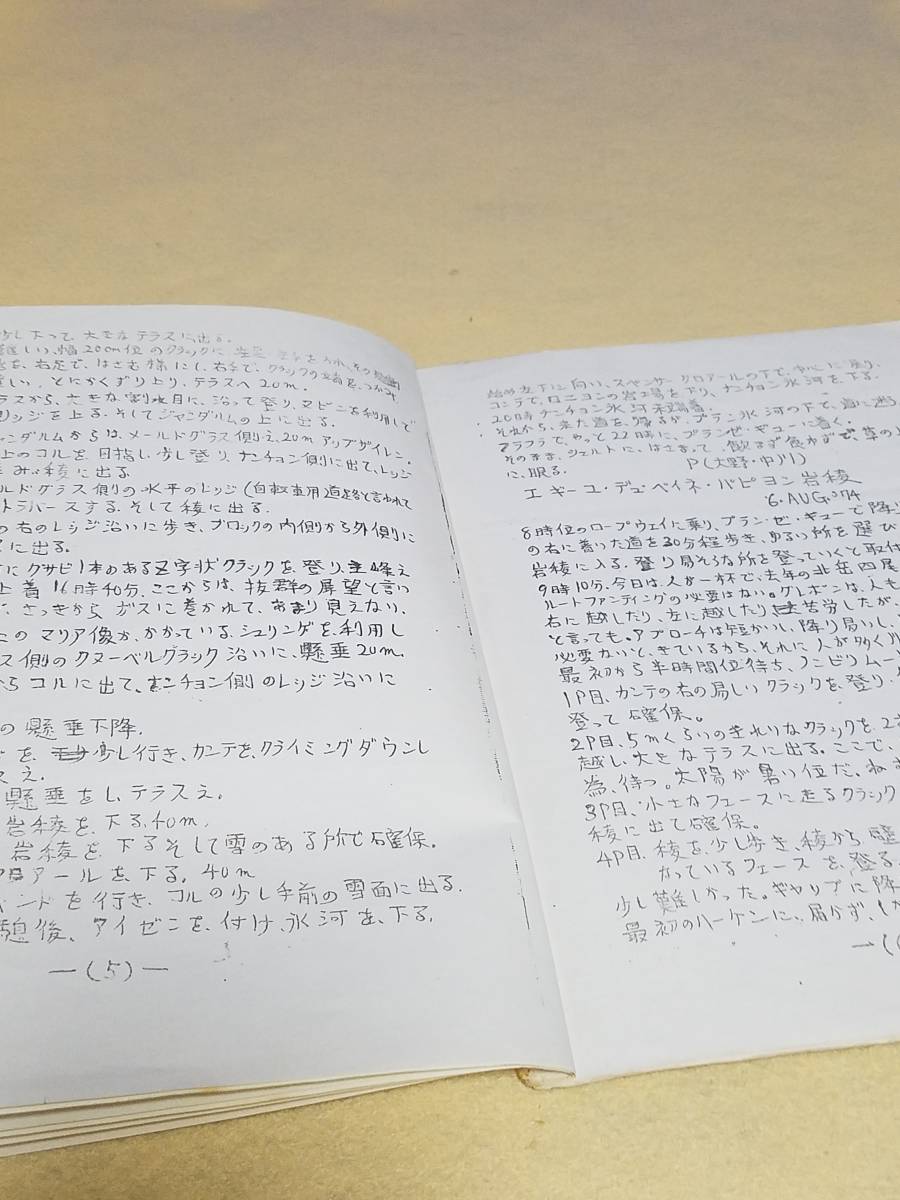 少し下って、大きなテラスに出る。
難しい、幅20cm位のクラックに
を、右足で、はさむ様にし、右手で、クラックの
しい、とにかくずり上り、テラスへ20m。
ラスから、大きな割れ目に、沿って登り、
リッジを上る。そしてジャンダルムの上に出る。
ャンダルムからは、メールドグラス側え、20mアップザイレン。
上のコルを目指し少し登り、ナンチョン側に出て、レッジ
み稜に出る。
ルドグラス側の水平のレッジ(自転車用道路と言われて
トラバースする。そして稜に出る。
の右のレッジ沿いに歩き、ブロックの内側から外側に
に出る。
にクサビ1本のあるZ字状クラックを、登り、主峰え
上着16時40分、ここからは、抜群の展望と言い
、さっきから、ガスに巻かれて、あまり見えない。
このマリア像が、かかっている、シュリンゲを、利用し
ス側のクヌーベルクラック沿いに、懸垂20m。
らコルに出て、ナンチョン側のレッジ沿いに
の懸垂下降。
を、少し行き、カンテを、クライミングダウンし
スえ。
懸垂をし、テラスえ。
岩稜を、下る、40m。
岩稜を、下るそして雪のある所で確保。
アールを、下る。40m
バンドを行き、コルの少し手前の雪面に出る。
憩後、アイゼンを、付け、氷河を、下る。
―(5)―
始め左下に向い、スペンサークロアールの下で、中心に戻り、
コンテで、ロニヨンの岩場を下り、ナンチョン氷河を下る。
20時ナンチョン氷河末端着
それから、来た道を、帰るが、ブラン氷河の下で、道に迷
フラフラで、やっと22時に、プランゼ・ギューに着く。
そのまま、シェルトに、はさまって、飲まず食わずで、草の
に、眠る。
P(大野・中川)
エギーユ・デュ・ペイネ・パピヨン岩稜
6.AUG.'74
8時位のロープウェイに乗り、プラン・ゼ・ギューで降り
の右に着いた道を30分程歩き、ゆるい所を選び
岩稜に入る。登り易そうな所を登っていくと取付
9時10分、今日は、人が一杯で、去年の北岳四尾
ルートファンディングの必要はない。グレポンは、人も
右に越したり、左に越したり苦労したが、
と言っても。アプローチは短かいし、降り易いし、
必要ないと、きているから、それに人が多くル
最初から半時間位待ち、ノンビリムー
1P目、カンテの右の易しいクラックを、登り、
登って確保。
2P目、5mくらいのきれいなクラックを、2
越し、大きなテラスに出る。ここで、
為、待つ。太陽が暑い位だ、ねむ
3P目、小さなフェースに走るクラック
稜に出て確保。
4P目、稜を、少し歩き、稜から壁
かっているフェースを、登る
少し難しかった。ギャップに降
最初のハーケンに、届かず、
―(